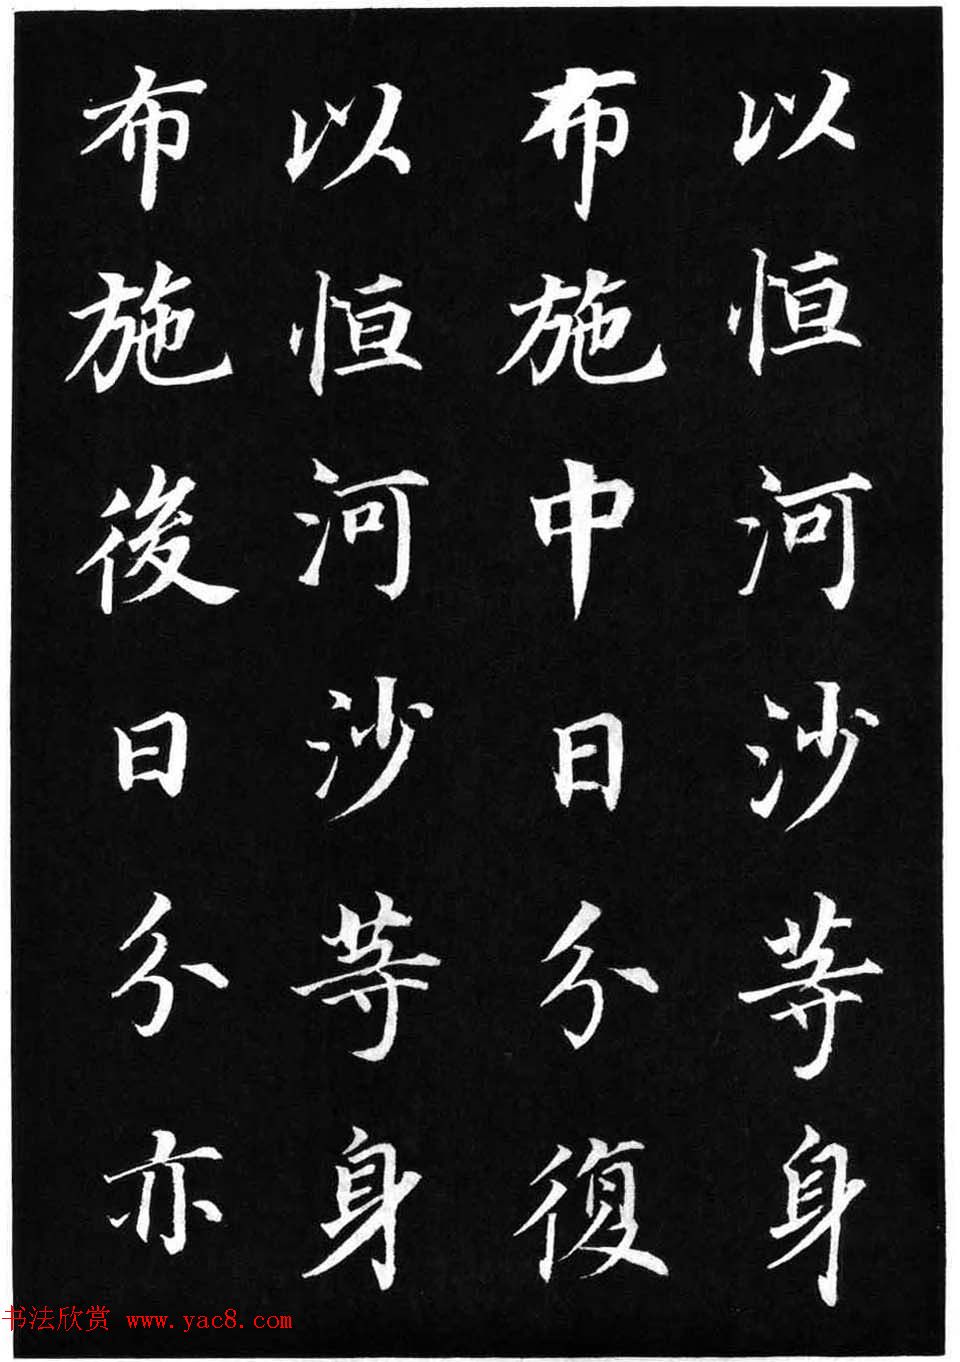 以恒河沙等身
布施中日分復
以恒河沙等身
布施後日分亦
书法欣赏 www.yac8.com